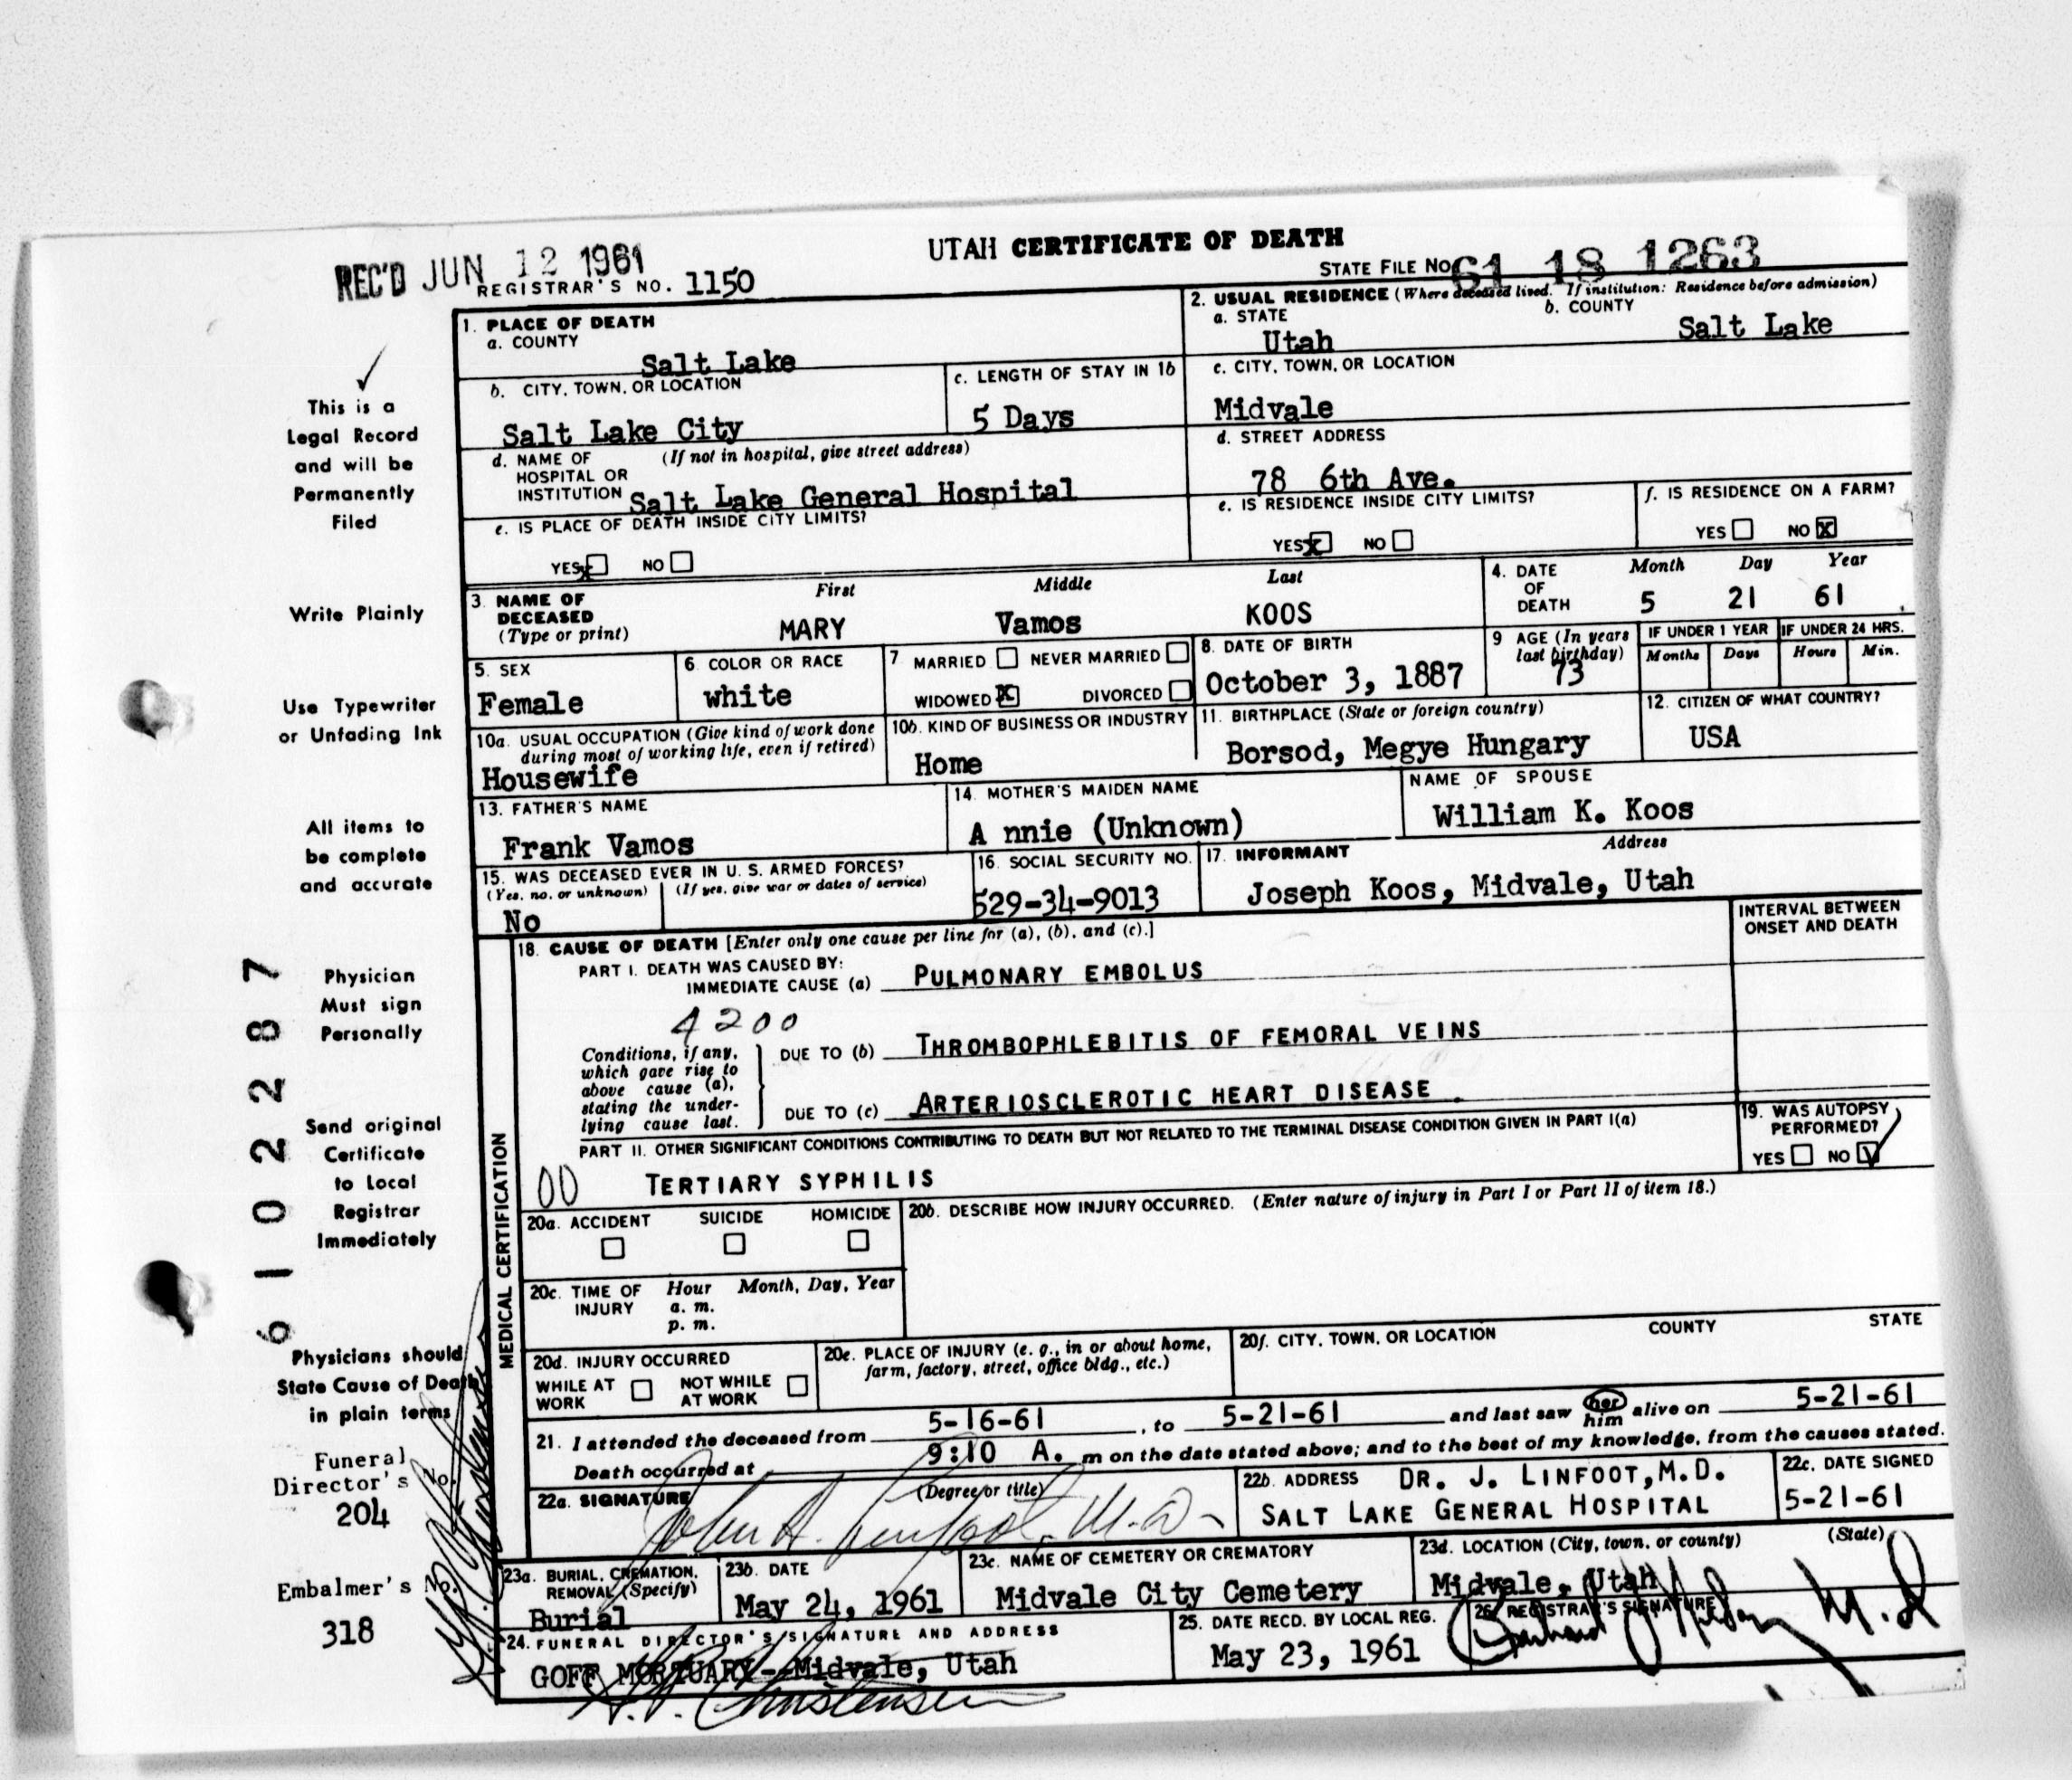 REC'D JUN 12 1961
REGISTRAR'S NO. 1150
UTAH CERTIFICATE OF DEATH
STATE FILE NO. 61 18 1263
This is a
Legal Record
and will be
Permanently
Filed
Write Plainly
Use Typewriter
or Unfading Ink
All items to
be complete
and accurate
Physician
Must sign
Personally
Send original
Certificate
to Local
Registrar
Immediately
Physicians should
State Cause of Death
in plain terms
Funeral
Director's No.
204
Embalmer's No.
318
61022287
1. PLACE OF DEATH
a. COUNTY
Salt Lake
b. CITY, TOWN, OR LOCATION
Salt Lake City
c. LENGTH OF STAY IN 1b
5 Days
d. NAME OF HOSPITAL OR INSTITUTION (If not in hospital, give street address)
Salt Lake General Hospital
e. IS PLACE OF DEATH INSIDE CITY LIMITS?
YES X NO
2. USUAL RESIDENCE (Where deceased lived. If institution: Residence before admission)
a. STATE
Utah
b. COUNTY
Salt Lake
c. CITY, TOWN, OR LOCATION
Midvale
d. STREET ADDRESS
78 6th Ave.
e. IS RESIDENCE INSIDE CITY LIMITS?
YES X NO
f. IS RESIDENCE ON A FARM?
YES NO X
3. NAME OF DECEASED (Type or print)
First Middle Last
MARY Vamos KOOS
4. DATE OF DEATH
Month Day Year
5 21 61
5. SEX
Female
6. COLOR OR RACE
white
7 MARRIED NEVER MARRIED
WIDOWED X DIVORCED
8. DATE OF BIRTH
October 3, 1887
9 AGE (In years last birthday)
73
IF UNDER 1 YEAR
Months Days
IF UNDER 24 HRS.
Hours Min.
10a. USUAL OCCUPATION (Give kind of work done during most of working life, even if retired)
Housewife
10b. KIND OF BUSINESS OR INDUSTRY
Home
11. BIRTHPLACE (State or foreign country)
Borsod, Megye Hungary
12. CITIZEN OF WHAT COUNTRY?
USA
13. FATHER'S NAME
Frank Vamos
14. MOTHER'S MAIDEN NAME
A nnie (Unknown)
NAME OF SPOUSE
William K. Koos
15. WAS DECEASED EVER IN U. S. ARMED FORCES?
(Yes, no, or unknown) (If yes, give war or dates of service)
No
16. SOCIAL SECURITY NO.
529-34-9013
17. INFORMANT Address
Joseph Koos, Midvale, Utah
MEDICAL CERTIFICATION
18. CAUSE OF DEATH [Enter only one cause per line for (a), (b), and (c).]
INTERVAL BETWEEN ONSET AND DEATH
PART I. DEATH WAS CAUSED BY:
IMMEDIATE CAUSE (a) PULMONARY EMBOLUS
4200
Conditions, if any, which gave rise to above cause (a), stating the underlying cause last.
DUE TO (b) THROMBOPHLEBITIS OF FEMORAL VEINS
DUE TO (c) ARTERIOSCLEROTIC HEART DISEASE.
PART II. OTHER SIGNIFICANT CONDITIONS CONTRIBUTING TO DEATH BUT NOT RELATED TO THE TERMINAL DISEASE CONDITION GIVEN IN PART I(a)
00 TERTIARY SYPHILIS
19. WAS AUTOPSY PERFORMED?
YES NO
20a. ACCIDENT SUICIDE HOMICIDE
20b. DESCRIBE HOW INJURY OCCURRED. (Enter nature of injury in Part I or Part II of item 18.)
20c. TIME OF INJURY Hour Month, Day, Year
a. m.
p. m.
20d. INJURY OCCURRED
WHILE AT WORK NOT WHILE AT WORK
20e. PLACE OF INJURY (e. g., in or about home, farm, factory, street, office bldg., etc.)
20f. CITY, TOWN, OR LOCATION COUNTY STATE
21. I attended the deceased from 5-16-61, to 5-21-61 and last saw her him alive on 5-21-61
Death occurred at 9:10 A. m on the date stated above; and to the best of my knowledge, from the causes stated.
22a. SIGNATURE (Degree or title)
John A. Linfoot, M.D.
22b. ADDRESS DR. J. LINFOOT, M.D.
SALT LAKE GENERAL HOSPITAL
22c. DATE SIGNED
5-21-61
23a. BURIAL, CREMATION, REMOVAL (Specify)
Burial
23b. DATE
May 24, 1961
23c. NAME OF CEMETERY OR CREMATORY
Midvale City Cemetery
23d. LOCATION (City, town, or county) (State)
Midvale, Utah
24. FUNERAL DIRECTOR'S SIGNATURE AND ADDRESS
GOFF MORTUARY--Midvale, Utah
H.P. Christensen
25. DATE RECD. BY LOCAL REG.
May 23, 1961
26. REGISTRAR'S SIGNATURE
M.D